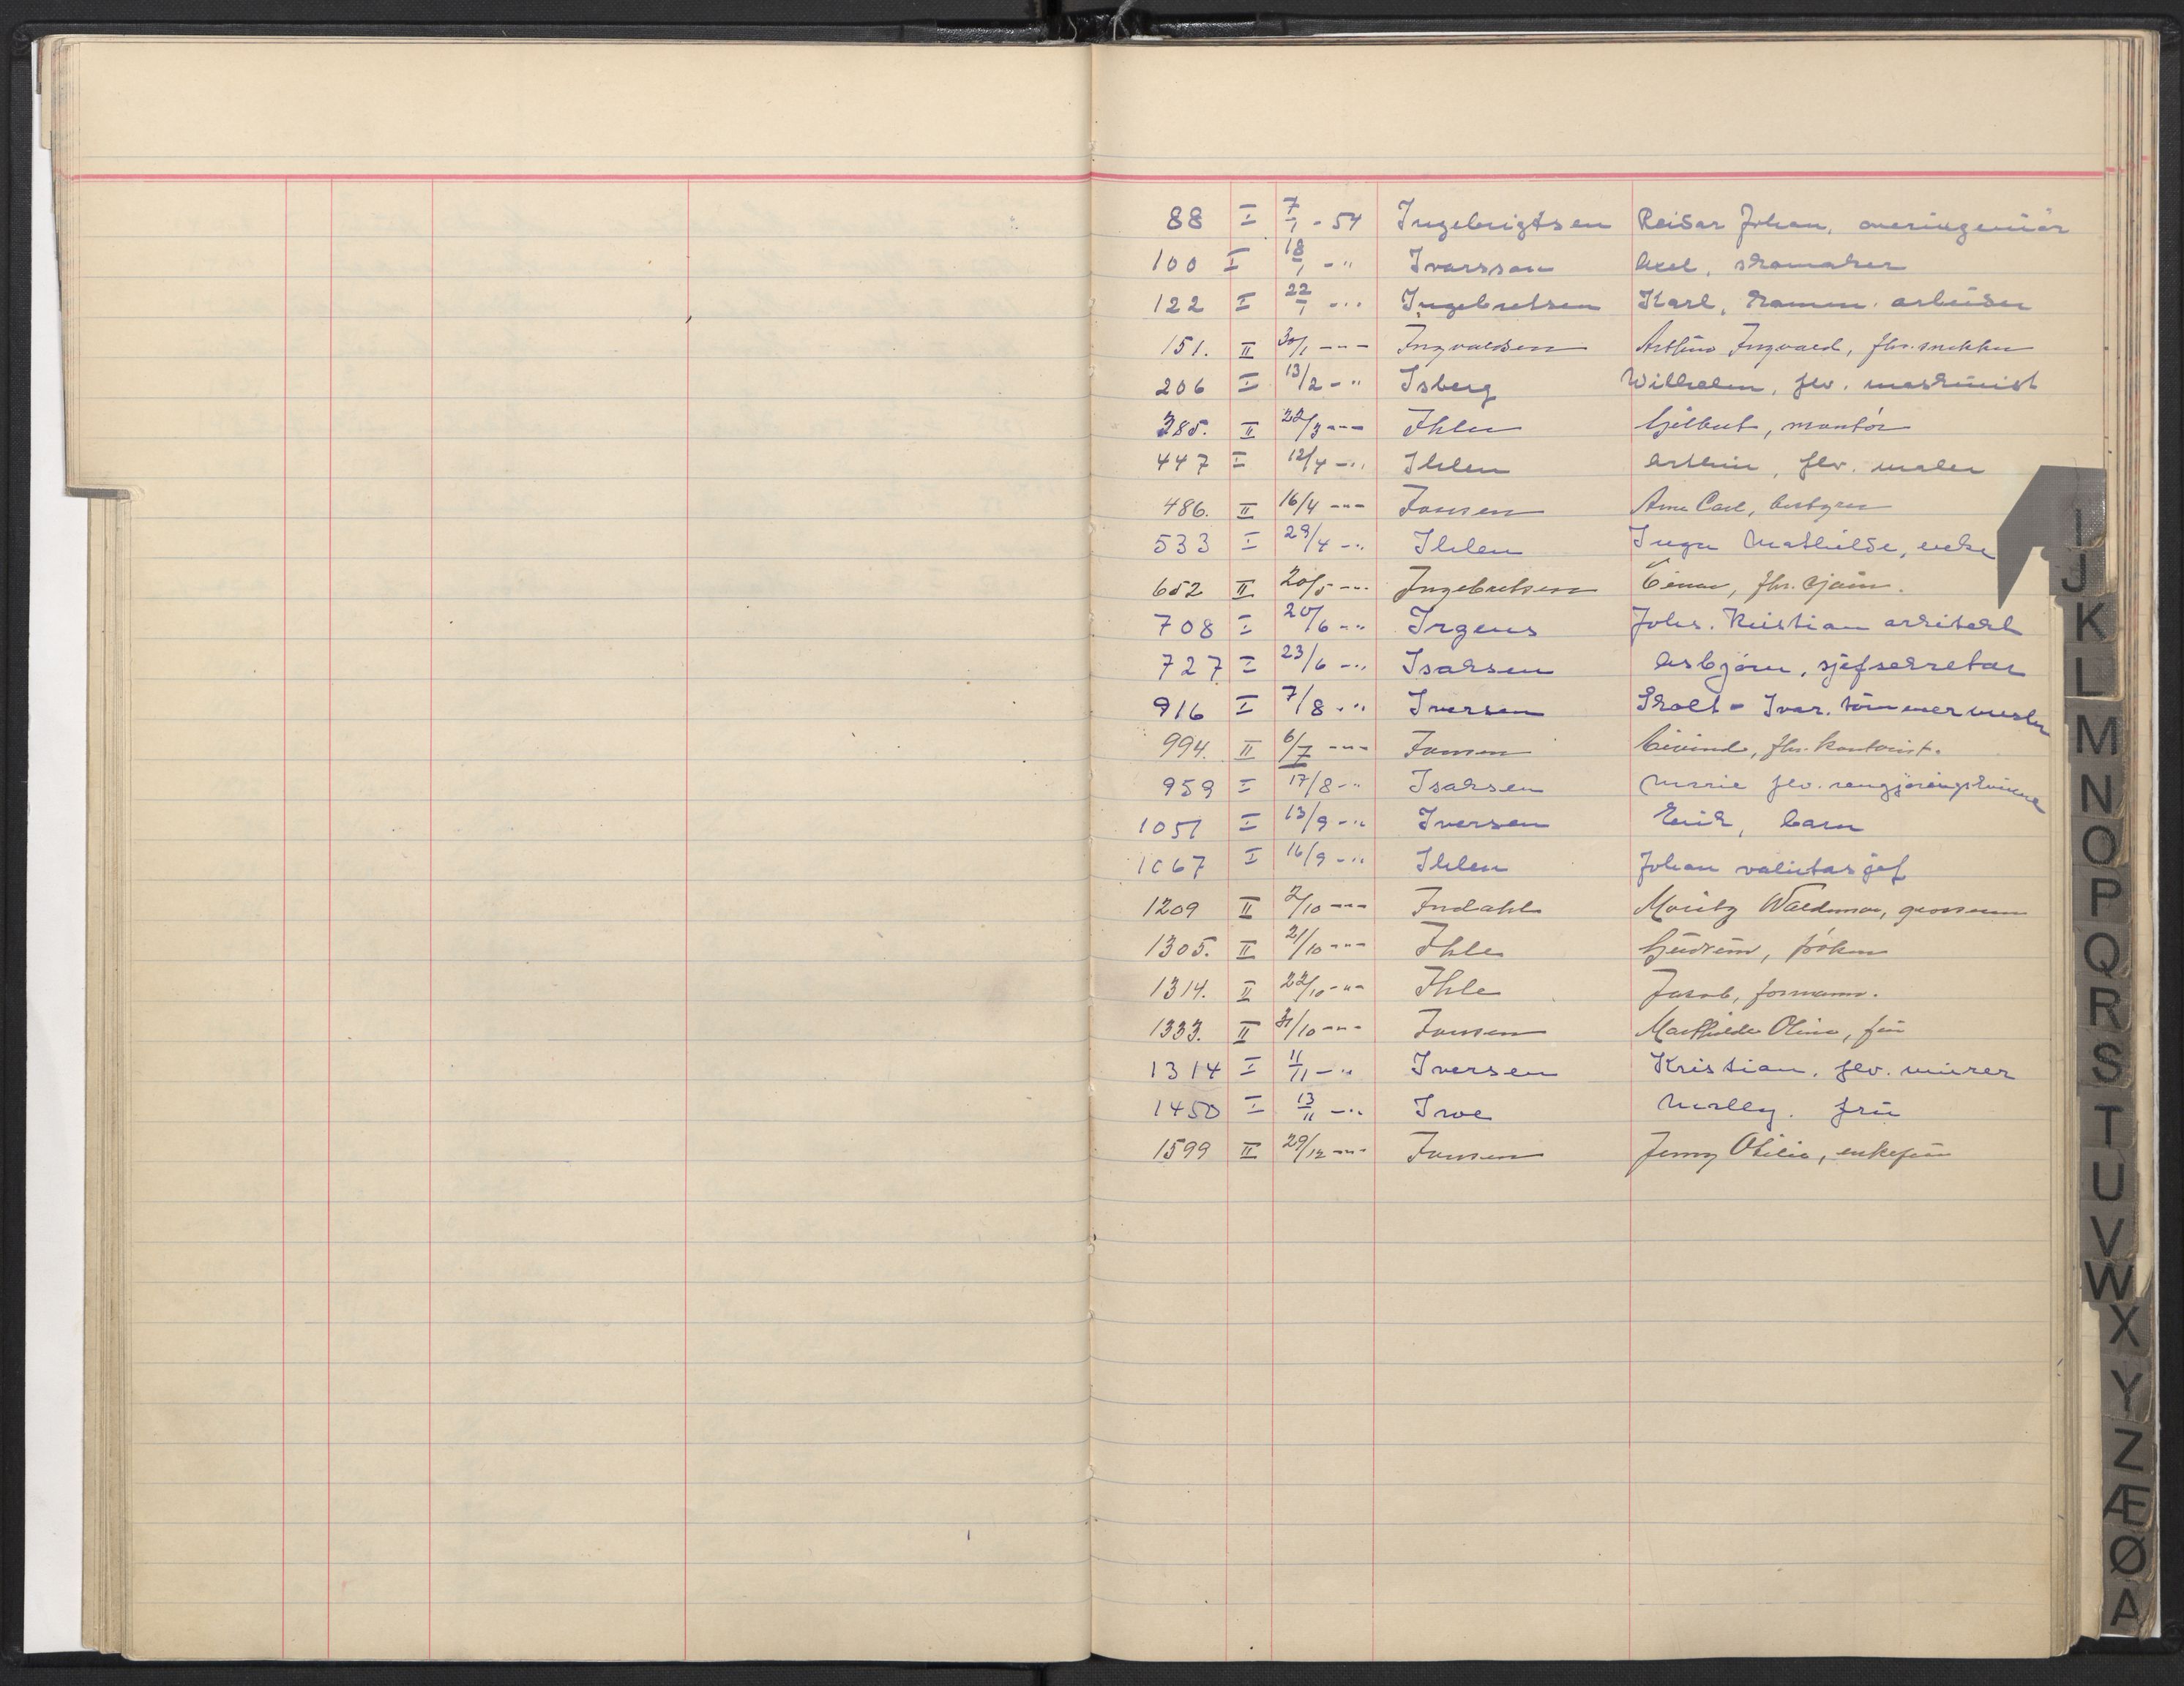 88 I 7/1 - 54 Ingebrigtsen Reidar Johan, overingeniør
100 I 18/1 - " Ivarsson Axel, skomaker
122 I 22/1 - " Ingebretsen Karl, komm. arbeider
151. II 30/1 - " - Ingvaldsen Arthur Ingvald, fhv. snekker
206 I 13/2 - " Isberg Wilhelm, fhv. maskinist
385. II 22/3 - " - Ihlen Gilbert, montør
447 I 12/4 - " Ihlen Arthur, fhv. maler
486. II 16/4 - " - Iversen Arne Carl,
533 I 29/4 - " Ihlen Inga Mathilde, enke
652 II 20/5 - " - Ingebretsen Einar, fhv.
708 I 20/6 - " Irgens Johs. Kristian arkitekt
727 I 23/6 - " Isaksen Asbjørn, sjefsekretær
916 I 7/8 - " Iversen Skolt - Ivar. tømmermester
994. II 6/7 - " - Iversen Eivind, fhv. kontorist.
959 I 17/8 - " Isaksen Marie fhv. rengjøringskvinne
1051 I 13/9 - " Iversen Erik, barn
1067 I 16/9 - " Ihlen Johan valutasjef
1209 II 2/10 - " - Indahl Moritz Waldemar, grosserer
1305. II 21/10 - " - Ihle Gudrun, frøken
1314. II 22/10 - " - Ihle Jacob, formann.
1333. II 31/10 - " - Iversen Mathilde Oline, fru
1314 I 11/11 - " Iversen Kristian, fhv. murer
1450 I 13/11 - " Iwe Molly. frue
1599 II 29/12 - " - Iversen Jenny Otilie, enkefru
I
J
K
L
M
N
O
P
Q
R
S
T
U
V
W
X
Y
Z
Æ
Ø
A